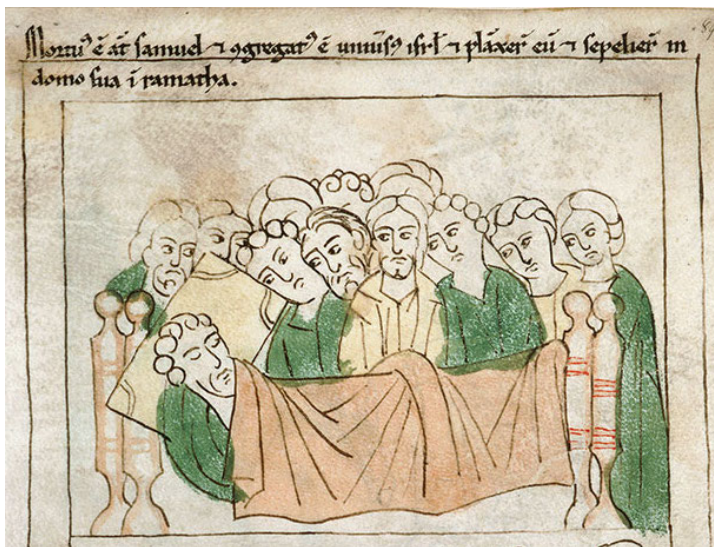 Mortu᾽ ē aт̄ samuel ⁊ ꝯgregat᾽ ē uniūs᾽ isrł ⁊ plāxer̄ eū ⁊ sepelier̄ in
domo sua ī ramatha.